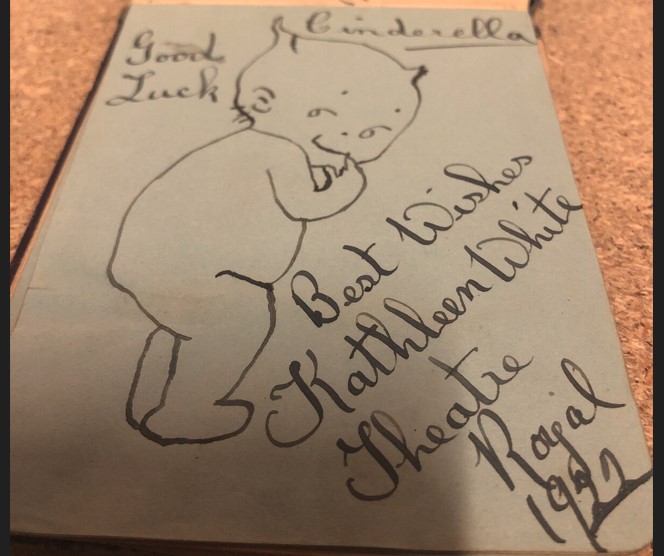 Cinderella
Good
Luck
Best Wishes
Kathleen White
Theatre
Royal
1922